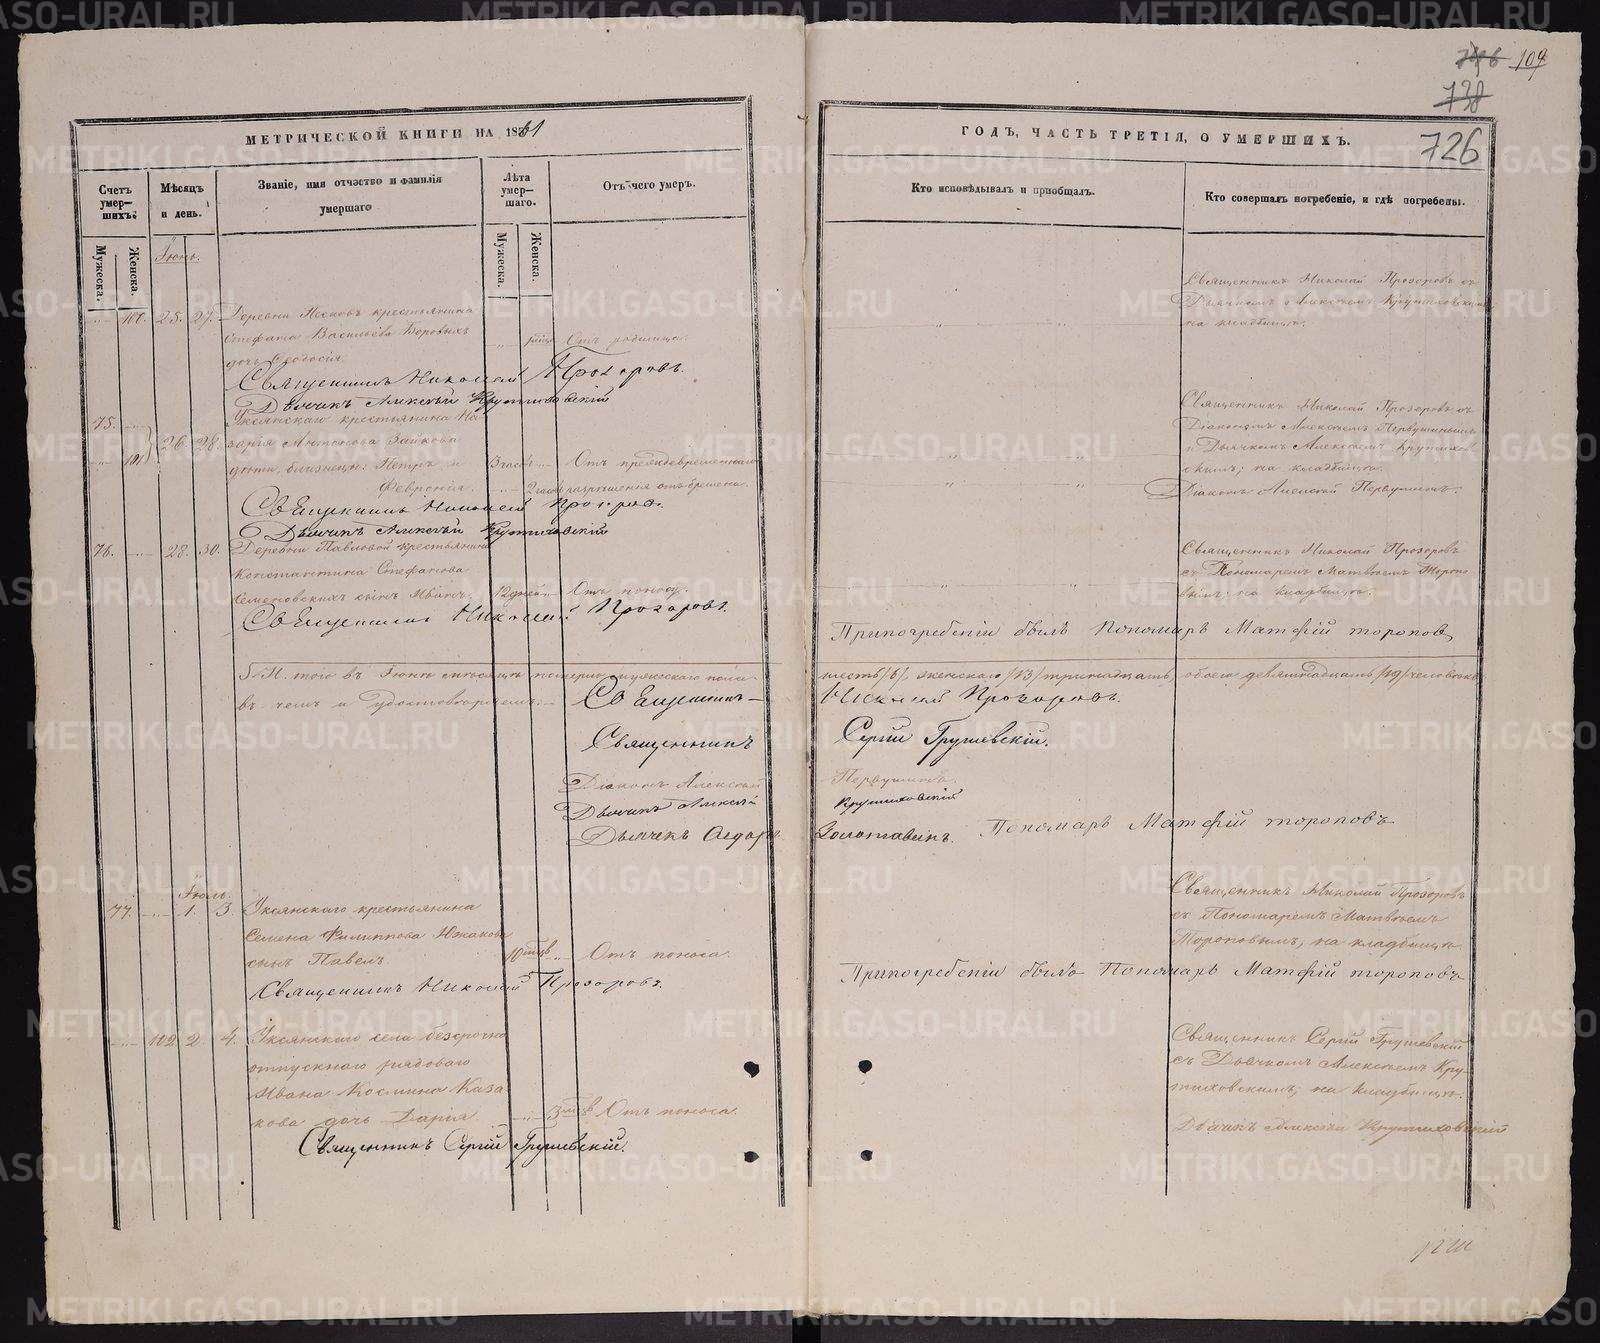 746 109
738
726
МЕТРИЧЕСКОЙ КНИГИ НА 1861
ГОДЪ, ЧАСТЬ ТРЕТІЯ, О УМЕРШИХЪ.
Счетъ умер-шихъ.
Мѣсяцъ и день.
Званіе, имя отчэство и фамилія умершаго
Лѣта умер-шаго.
Отъ чего умеръ.
Кто исповѣдывалъ и пріобщалъ.
Кто совершалъ погребеніе, и гдѣ погребены.
Мужеска.
Женска.
Мужеска.
Женска.
Іюнь.
100. 25. 27. Деревни Песковъ крестьянина
Стефана Васильева Боровыхъ
дочь Ѳеодосія.
Отъ родимца.
Священникъ Николай Прозоровъ съ
Дьячкомъ Алексѣемъ Крутиховскимъ
на кладбищѣ.
Священникъ Николай Прозоровъ.
Дьячикъ Алексѣй Крутиховскій
75.
101 26. 28.
Уксянскаго крестьянина На-
зарія Антонова Зайкова
дѣти близнецы: Петръ и
Февронія.
3 часа
2 часа
Отъ преждевременнаго
разрѣшенія отъ бремени.
Священникъ Николай Прозоровъ съ
Діакономъ Алексѣемъ Первушинымъ
и Дьячкомъ Алексѣемъ Крутихов-
скимъ; на кладбищѣ.
Діаконъ Алексѣй Первушинъ.
Священникъ Николай Прозоровъ.
Дьячикъ Алексѣй Крутиховскій
76. 28. 30. Деревни Павловой крестьянина
Константина Стефанова
Семеновскихъ сынъ Иванъ.
12 дней
Отъ поносу.
Священникъ Николай Прозоровъ
съ Пономаремъ Матвѣемъ Торопо-
вымъ; на кладбищѣ.
Священникъ Николай Прозоровъ.
Припогребеніи былъ Пономарь Матфій торопов
Итого въ Іюнѣ мѣсяцѣ померло мужескаго пола
шесть /6/, женскаго /13/ тринадцать, обоего девятнадцать /19/ человѣкъ
въ чемъ и удостовѣряемъ:
Священникъ Николай Прозоровъ.
Священникъ Сергій Грушевскій.
Діаконъ Алексѣй Первушинъ.
Дьячикъ Алексѣй Крутиховскій
Дьячекъ Ѳедоръ Золотавинъ. Пономарь Матфій тороповъ
Іюль.
77. 1. 3. Уксянскаго крестьянина
Семена Филиппова Южакова
сынъ Павелъ.
10 мцвъ
Отъ поноса.
Священникъ Николай Прозоровъ
съ Пономаремъ Матвѣемъ
Тороповымъ; на кладбищѣ.
Священникъ Николай Прозоровъ.
Припогребеніи былъ Пономарь Матфій тороповъ
102. 2. 4. Уксянскаго села безсрочно
отпускнаго рядоваго
Ивана Космина Каза-
кова дочь Дарія.
Отъ поноса.
Священникъ Сергій Грушевскій
съ Дьячкомъ Алексѣемъ Кру-
тиховскимъ; на кладбищѣ.
Дьячикъ Алексѣй Крутиховскій
Священникъ Сергій Грушевскій.
METRIKI.GASO-URAL.RU